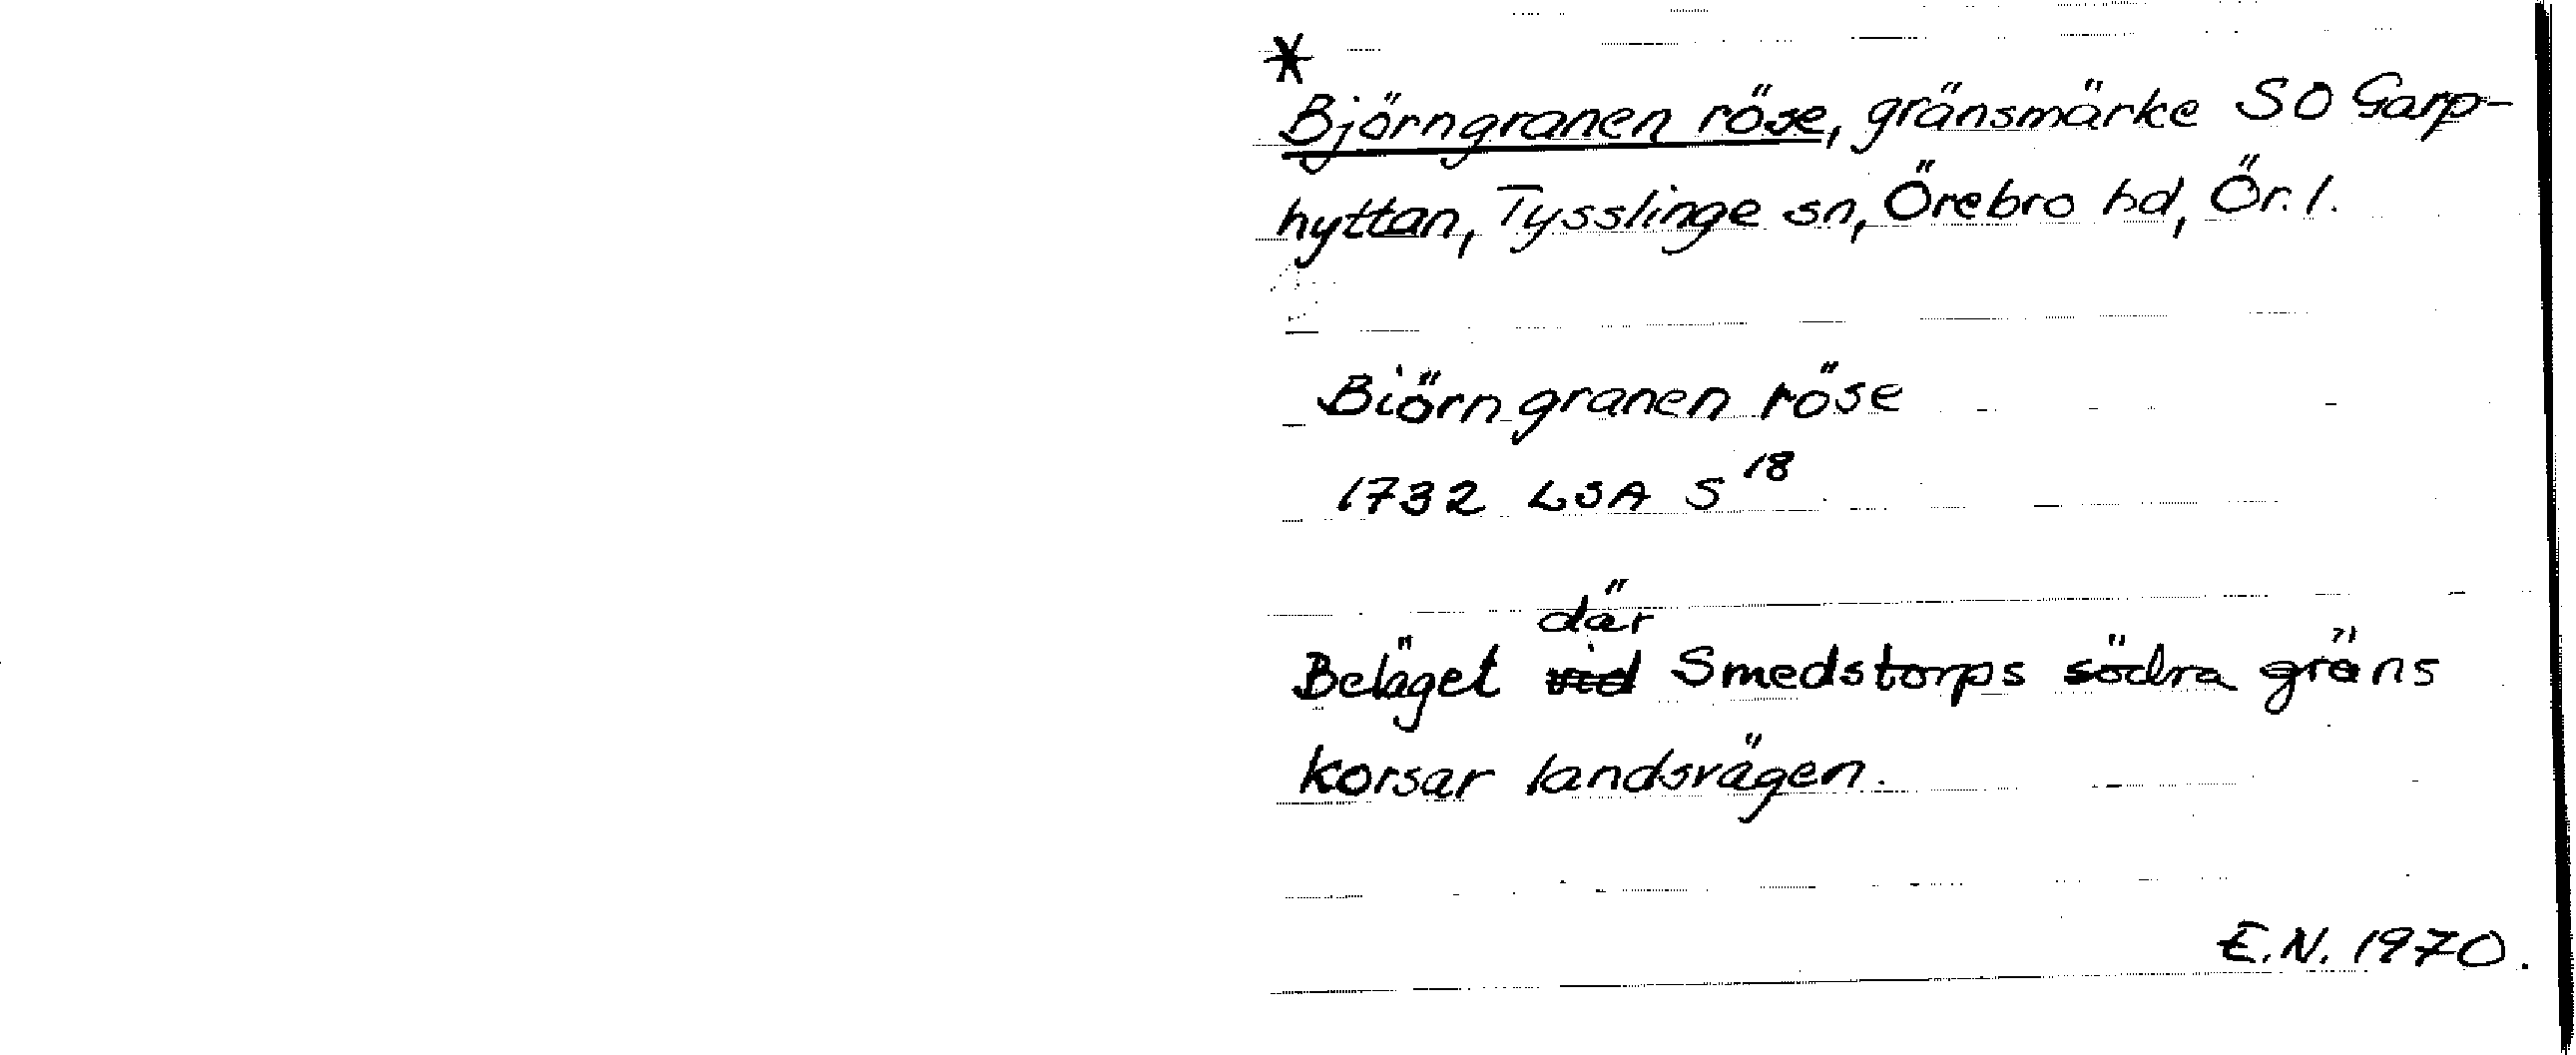 *
Björngranen röse, gränsmärke SO Garp-
hyttan, Tysslinge sn, Örebro hd, Ör. l.
Biörngranen röse
1732 LSA S 18
där
Beläget vid Smedstorps södra gräns
korsar landsvägen.
E.N. 1970.